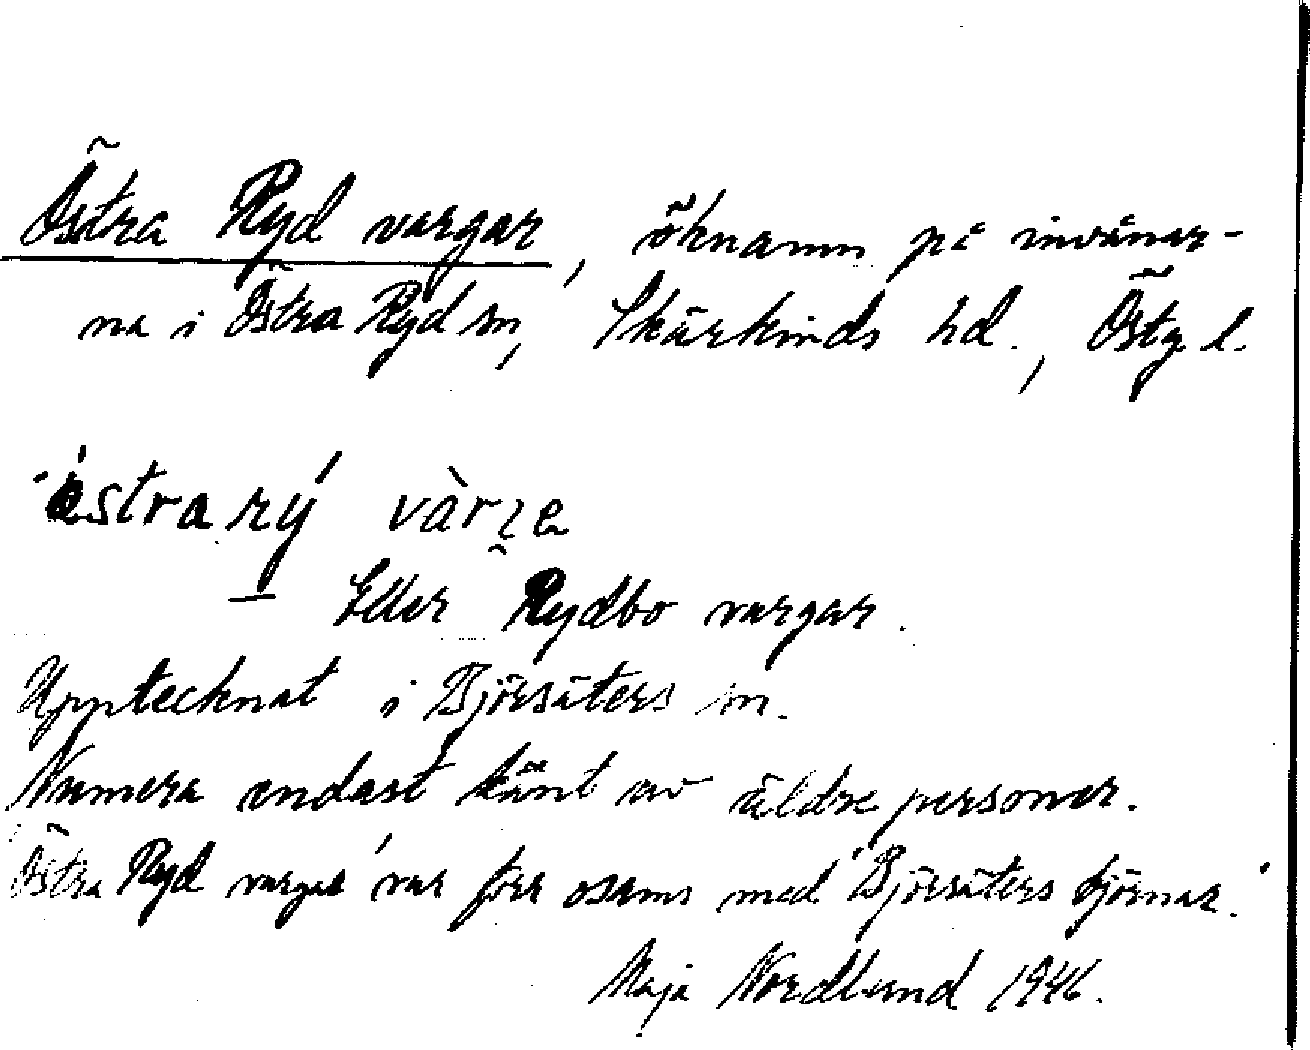 Östra Ryd vargar, öknamn på invånar-
na i Östra Ryd sn, Skärkinds hd., Östg. l.
östra rý vàrɟe
Eller Rydbo vargar.
Upptecknat i Björsäters sn.
Numera endast känt av äldre personer.
"Östra Ryd vargar" var förr osams med "Björsäters björnar."
Maja Nordlund 1946.